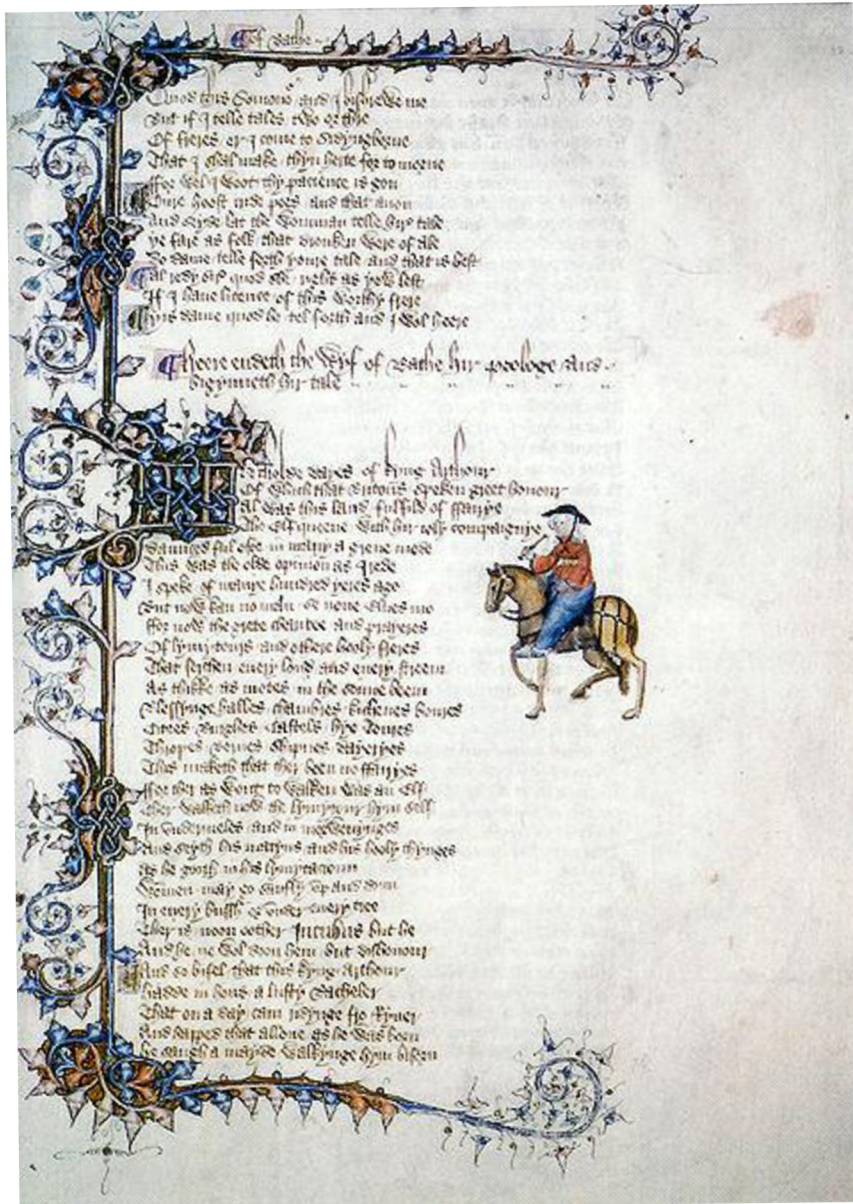 Of Bathe
Quod this Somonor and I bishrewe me
But if I telle tales two or thre
Of freres er I come to Sidyngborne
That I shal make thyn herte for to morne
ffor wel I woot thy pacience is gon
Oure hoost cride pees and that anon
And seyde lat the womman telle hir tale
ye fare as folk that dronken were of ale
Do dame telle forth youre tale and that is best
Al redy sire quod she right as yow lest
If I have licence of this worthy frere
yis dame quod he tel forth and I wol heere
Heere endeth the Wyf of Bathe hir prologe And
bigynneth hir tale
In tholde dayes of kyng Arthour
Of which that Britons speken greet honour
Al was this land fulfild of ffairye
The Elf queene with hir ioly compaignye
Daunced ful ofte in many a grene mede
This was the olde opinion as I rede
I speke of manye hundred yeres ago
But now kan no man se none Elves mo
ffor now the grete charitee and prayeres
Of lymytours and othere hooly freres
That serchen every lond and every streem
As thikke as motes in the sonne beem
Blessynge halles chambres kichenes boures
Citees Burghes Castels hye Toures
Thropes Bernes Shipnes Dayeryes
This maketh that ther been no ffairyes
ffor ther as wont to walken was an Elf
Ther walketh now the lymytour hym self
In undermeles and in morwenynges
And seyth his matyns and his hooly thynges
As he gooth in his lymytacioun
Wommen may go saufly up and doun
In every bussh or under every tree
Ther is noon oother Incubus but he
And he ne wol doon hem but dishonour
And so bifel that this kyng Arthour
hadde in hous a lusty Bacheler
That on a day cam ridynge fro Ryver
And happed that allone as he was born
he saugh a mayde walkynge hym biforn